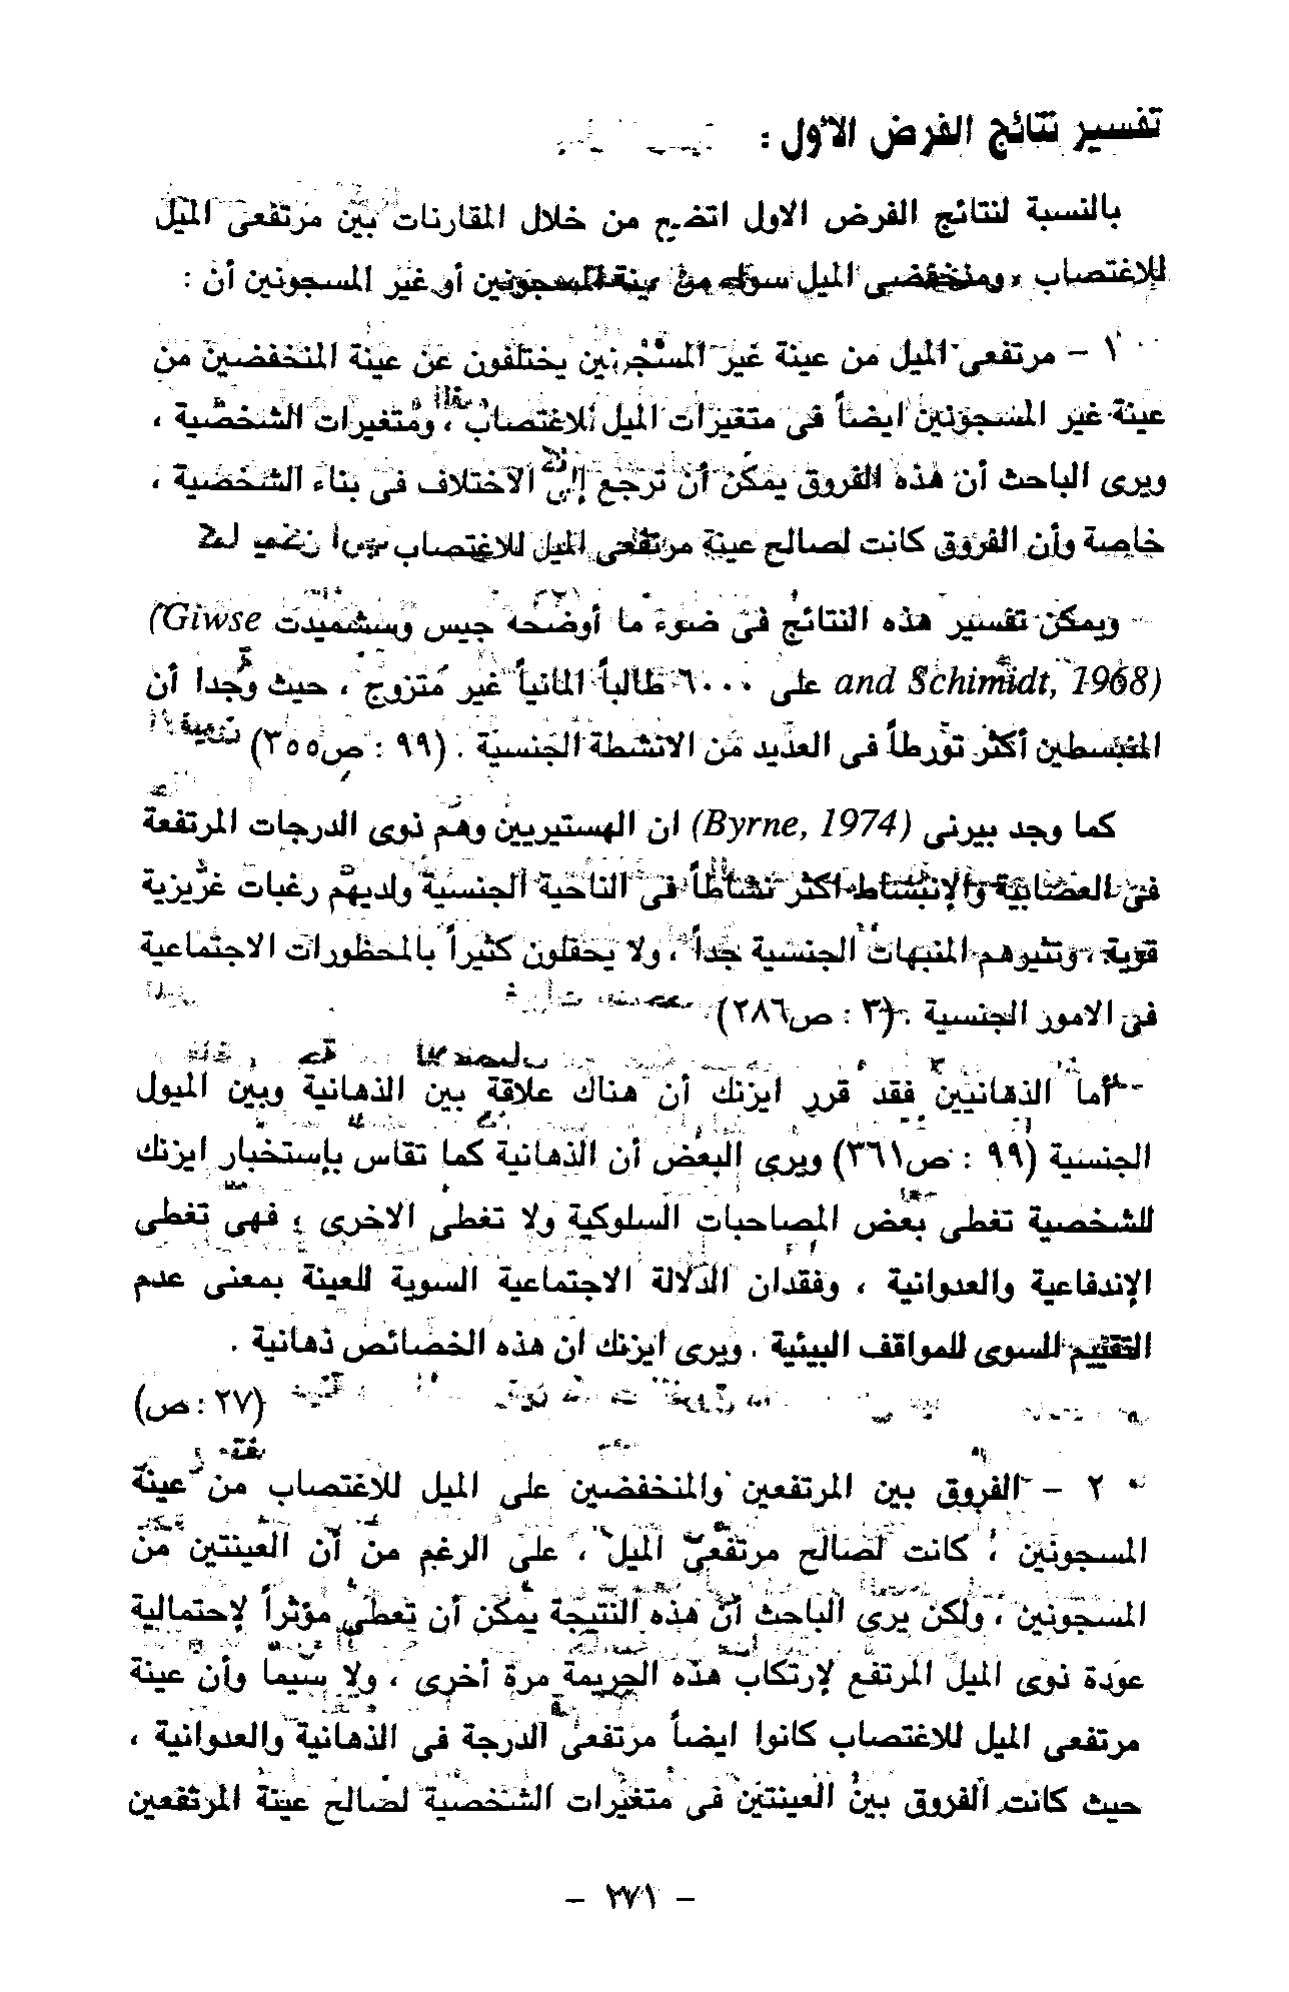 تفسير نتائج الفرض الأول :
بالنسبة لنتائج الفرض الاول اتضح من خلال المقارنات بين مرتفعى الميل
للإغتصاب ، ومنخفضى الميل سواء من عينة المسجونين أو غير المسجونين أن :
١ - مرتفعى الميل من عينة غير المسجونين يختلفون عن عينة المنخفضين من
عينة غير المسجونين ايضاً فى متغيرات الميل للاغتصاب ، ومتغيرات الشخصية ،
ويرى الباحث أن هذه الفروق يمكن أن ترجع إلى الاختلاف فى بناء الشخصية ،
خاصة وأن الفروق كانت لصالح عينة مرتفعى الميل للاغتصاب
ويمكن تفسير هذه النتائج فى ضوء ما أوضحه جيس وسشميدت (Giwse
and Schimidt, 1968) على ٦٠٠٠ طالباً المانياً غير متزوج ، حيث وجدا أن
المنبسطين أكثر تورطاً فى العديد من الانشطة الجنسية . (٩٩ : ص٣٥٥)
كما وجد بيرنى (Byrne, 1974) ان الهستيريين وهم ذوى الدرجات المرتفعة
فى العصابية والإنبساط اكثر نشاطاً فى الناحية الجنسية ولديهم رغبات غريزية
قوية ، وتثيرهم المنبهات الجنسية جداً ، ولا يحفلون كثيراً بالمحظورات الاجتماعية
فى الامور الجنسية . (٣ : ص٢٨٦)
أما الذهانيين فقد قرر ايزنك أن هناك علاقة بين الذهانية وبين الميول
الجنسية (٩٩ : ص٣٦١) ويرى البعض أن الذهانية كما تقاس بإستخبار ايزنك
للشخصية تغطى بعض المصاحبات السلوكية ولا تغطى الاخرى ، فهى تغطى
الإندفاعية والعدوانية ، وفقدان الدلالة الاجتماعية السوية للعينة بمعنى عدم
التقييم السوى للمواقف البيئية . ويرى ايزنك ان هذه الخصائص ذهانية .
(٢٧ : ص)
٢ - الفروق بين المرتفعين والمنخفضين على الميل للاغتصاب من عينة
المسجونين ، كانت لصالح مرتفعى الميل ، على الرغم من أن العينتين من
المسجونين ، ولكن يرى الباحث أن هذه النتيجة يمكن أن تعطى مؤثراً لإحتمالية
عودة ذوى الميل المرتفع لإرتكاب هذه الجريمة مرة أخرى ، ولا سيما وأن عينة
مرتفعى الميل للاغتصاب كانوا ايضاً مرتفعى الدرجة فى الذهانية والعدوانية ،
حيث كانت الفروق بين العينتين فى متغيرات الشخصية لصالح عينة المرتفعين
- ٢٧١ -